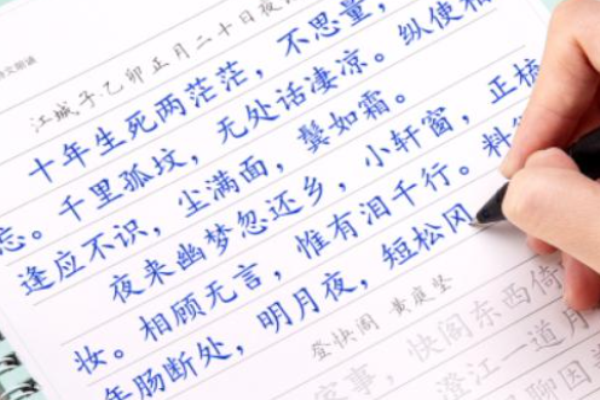 江城子·乙卯正月二十日夜
十年生死两茫茫，不思量，
忘。千里孤坟，无处话凄凉。纵使相
逢应不识，尘满面，鬓如霜。
夜来幽梦忽还乡，小轩窗，正梳
妆。相顾无言，惟有泪千行。料
年肠断处，明月夜，短松冈
登快阁 黄庭坚
家事，快阁东西倚
澄江一道月
聊因